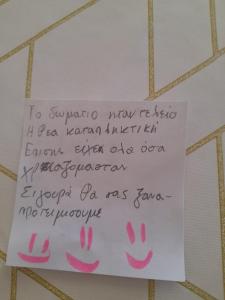 Το δωματιο ηταν τελειο
Η θεα καταπληκτικη
Επισης ειχε ολα όσα
χρειαζομασταν
Σιγουρά θα σας ξανα-
προτειμισουμε